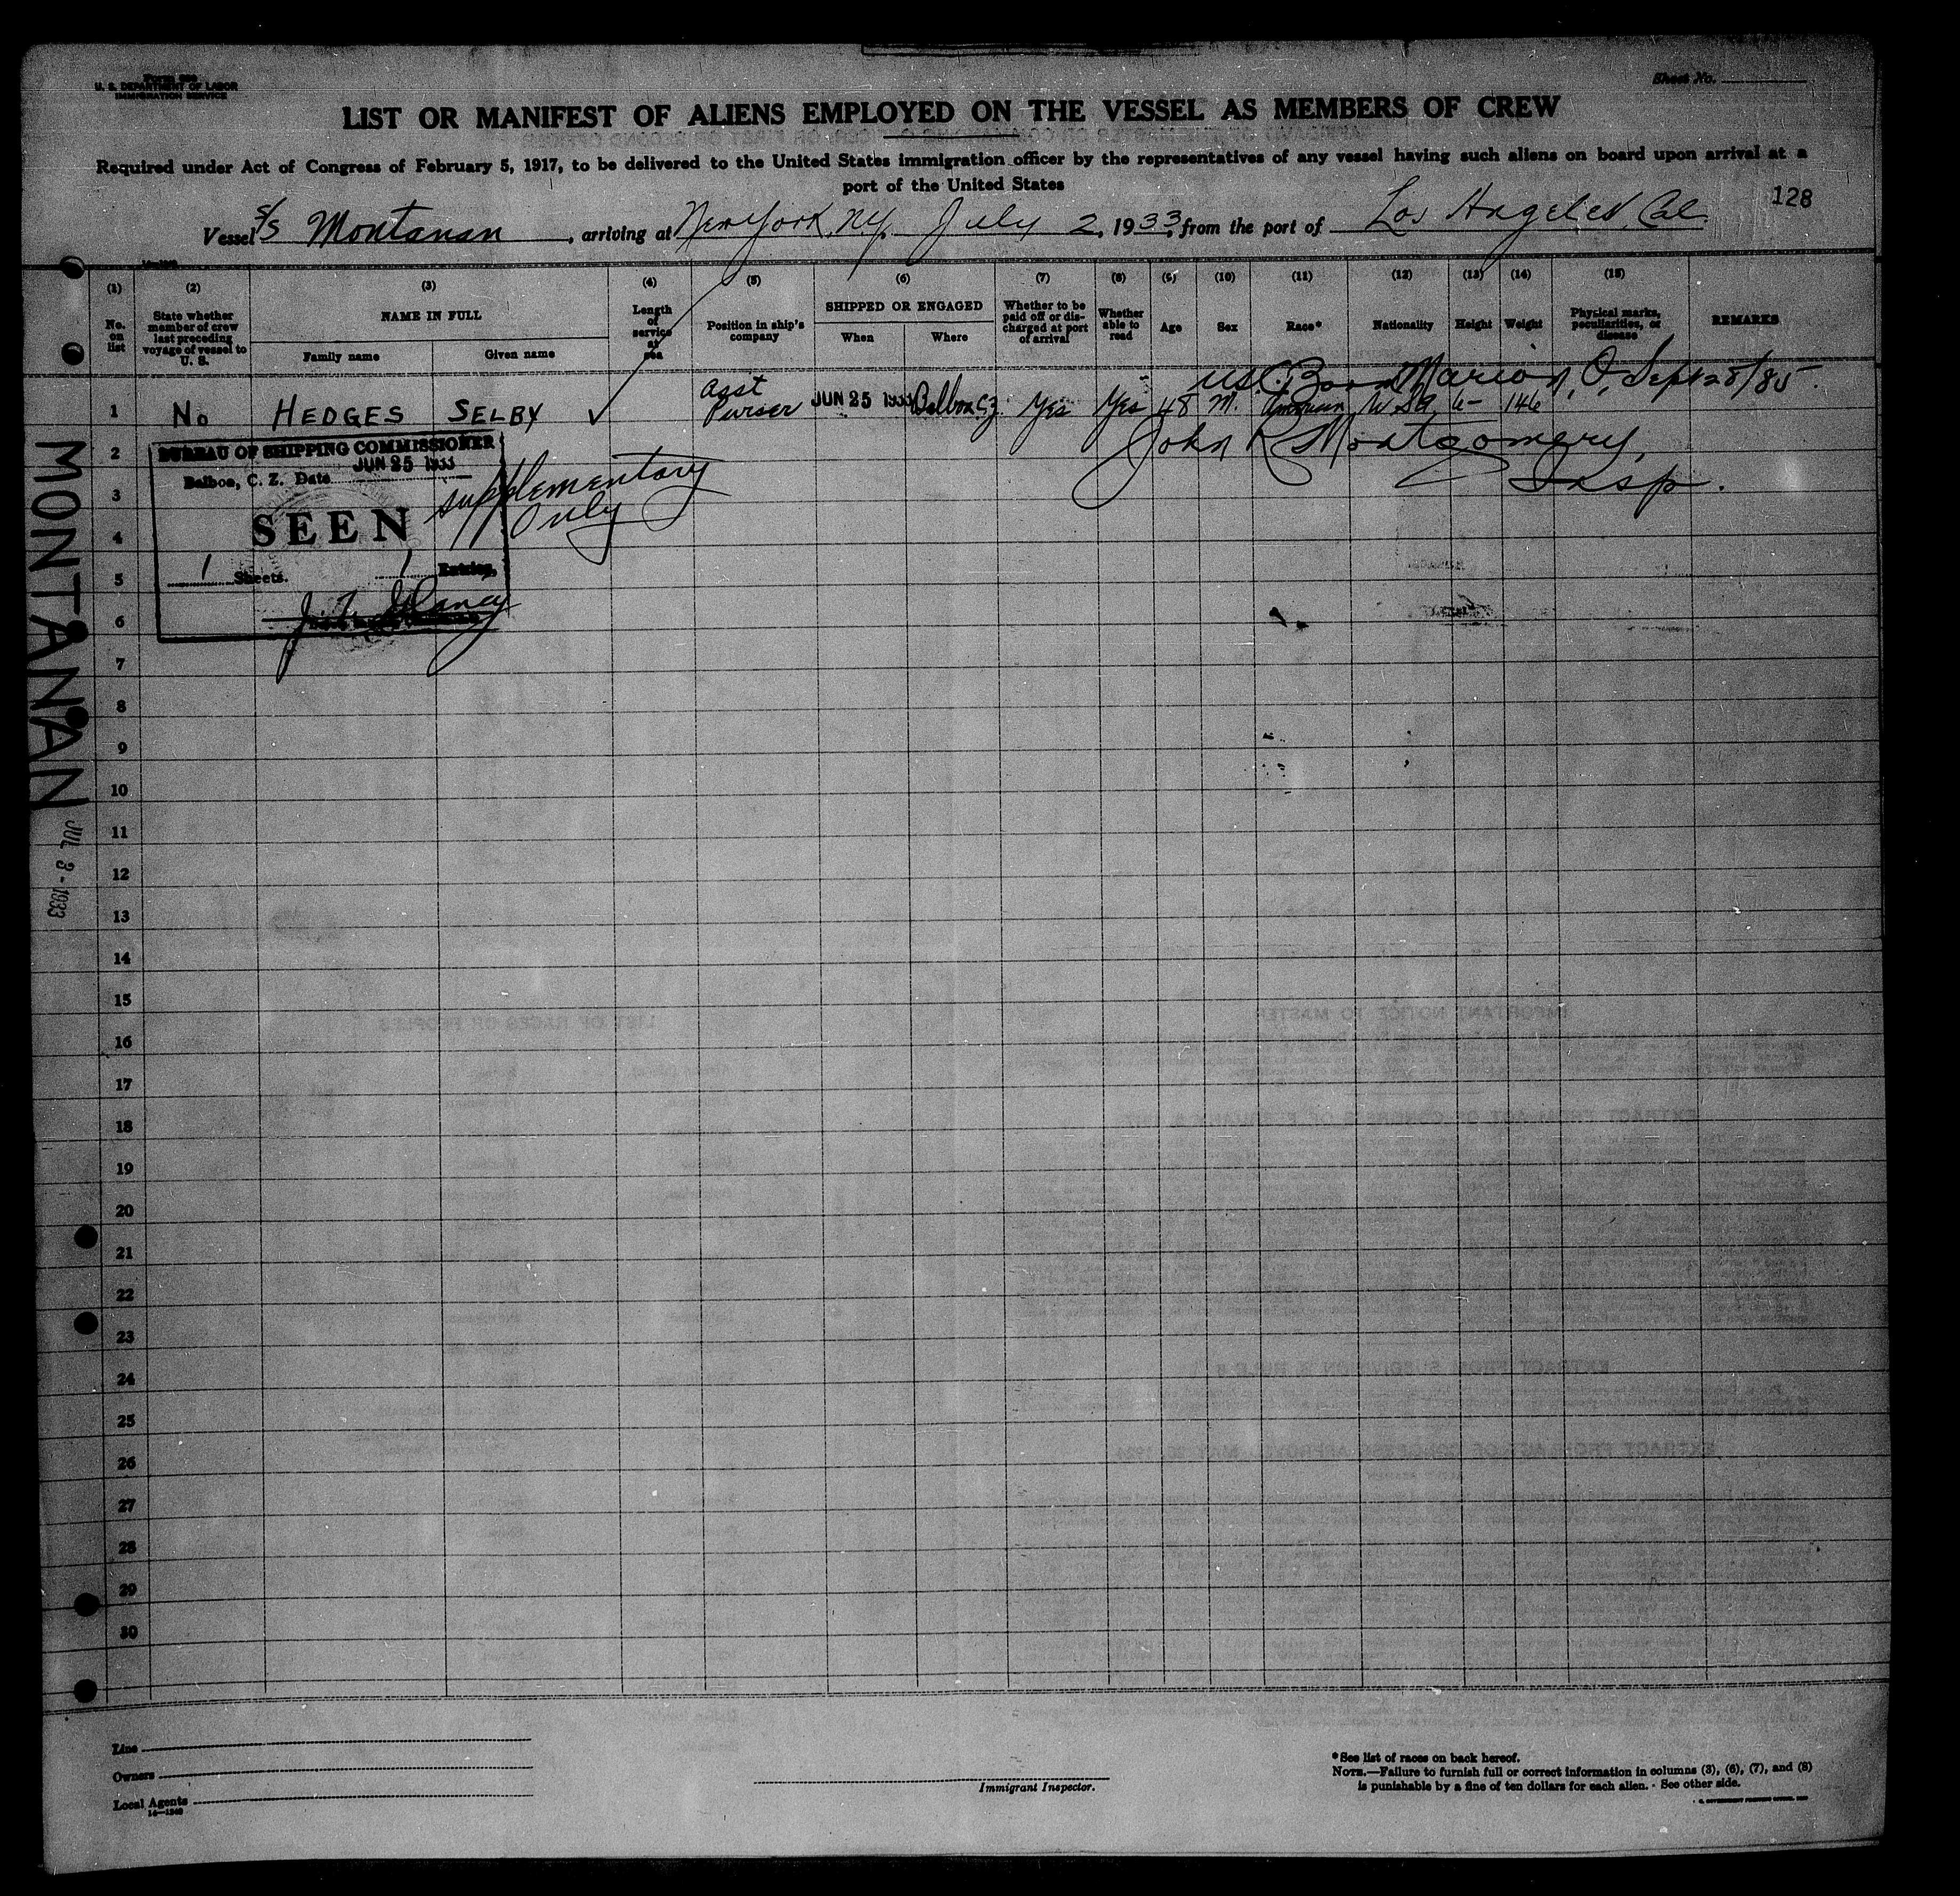 U. S. DEPARTMENT OF LABOR
IMMIGRATION SERVICE
Sheet No.
LIST OR MANIFEST OF ALIENS EMPLOYED ON THE VESSEL AS MEMBERS OF CREW
Required under Act of Congress of February 5, 1917, to be delivered to the United States immigration officer by the representatives of any vessel having such aliens on board upon arrival at a
port of the United States
128
Vessel S/S Montanan, arriving at New York, N.Y. July 2, 1933, from the port of Los Angeles, Cal.
(1) (2) (3) (4) (5) (6) (7) (8) (9) (10) (11) (12) (13) (14) (15)
No. on list
State whether member of crew last preceding voyage of vessel to U. S.
NAME IN FULL
Family name
Given name
Length of service at sea
Position in ship's company
SHIPPED OR ENGAGED
When
Where
Whether to be paid off or discharged at port of arrival
Whether able to read
Age
Sex
Race*
Nationality
Height
Weight
Physical marks, peculiarities, or disease
REMARKS
USC. Born Marion, O, Sept 28/85.
1 No HEDGES SELBY ✓ Asst Purser JUN 25 1933 Balboa C.Z. Yes Yes 48 M. American U.S.A. 6- 146
John R Montgomery,
Insp.
BUREAU OF SHIPPING COMMISSIONER
Balboa, C. Z. Date JUN 25 1933
SEEN
1 Sheets. 1 Entries,
Supplementary
Only
2
3
4
5
6
7
8
9
10
11
12
13
14
15
16
17
18
19
20
21
22
23
24
25
26
27
28
29
30
MONTANAN
JUL 3 - 1933
Line
Owners
Local Agents
14—1240
Immigrant Inspector.
*See list of races on back hereof.
NOTE.—Failure to furnish full or correct information in columns (3), (6), (7), and (8)
is punishable by a fine of ten dollars for each alien. - See other side.